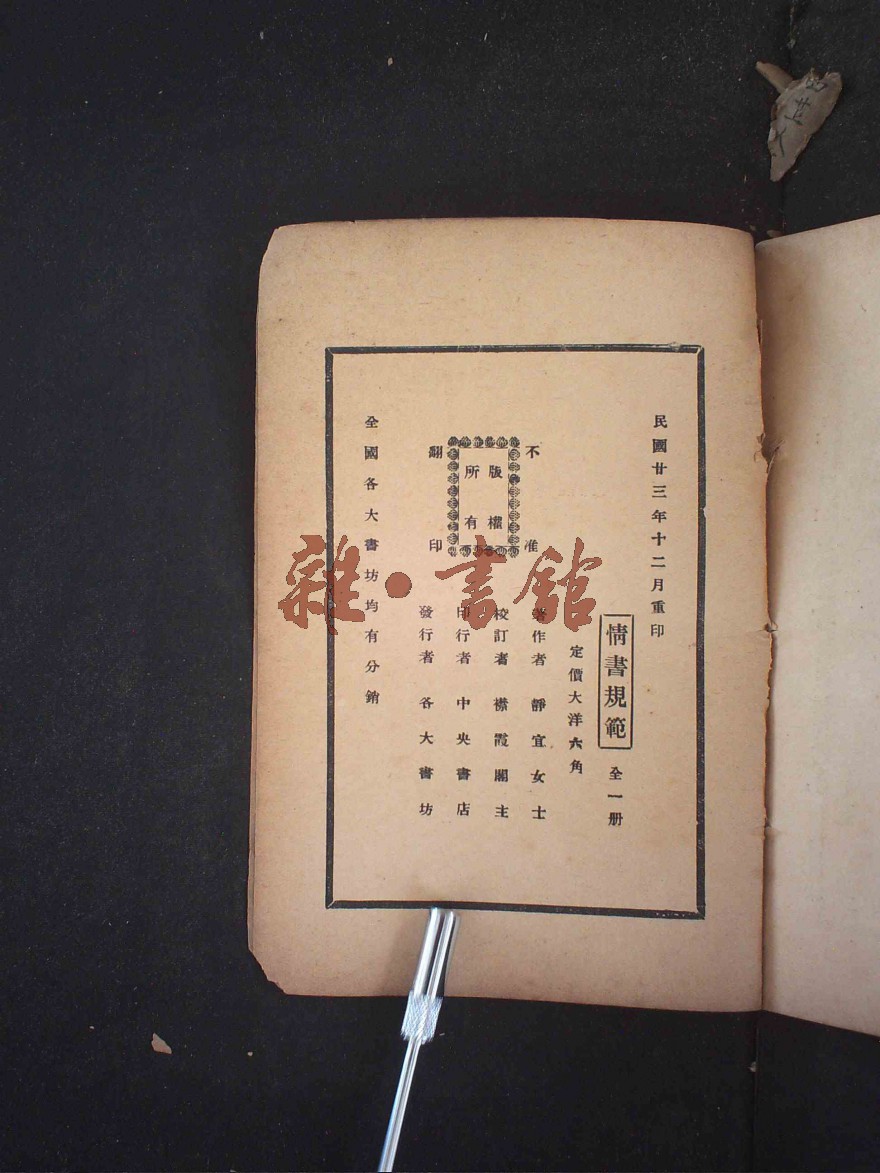 民國廿三年十二月重印
情書規範 全一册
定價大洋六角
著作者 靜宜女士
校訂者 襟霞閣主
印行者 中央書店
發行者 各大書坊
不准
版權
所有
翻印
全國各大書坊均有分銷
雜·書館